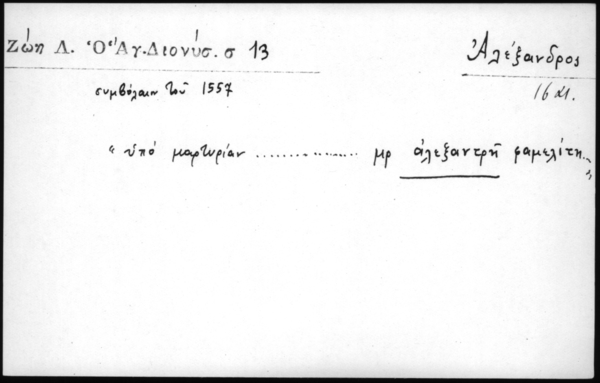 Ζώη Λ. Ὁ Ἅγ. Διονύσ. σ 13
Ἀλέξανδρος
συμβόλαιον τοῦ 1557
16 αι.
" ὑπό μαρτυρίαν .................. μρ ἀλεξαντρῆ φαμελίτη... "